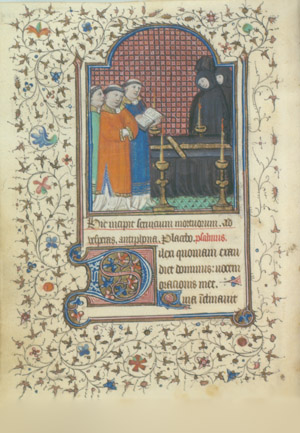 Hic incipit seruicium mortuorum. Ad
vesperas, antiphona. Placebo. psalmus.
Dilexi quoniam exau
diet dominus: uocem
orationis mee.
Quia inclinauit